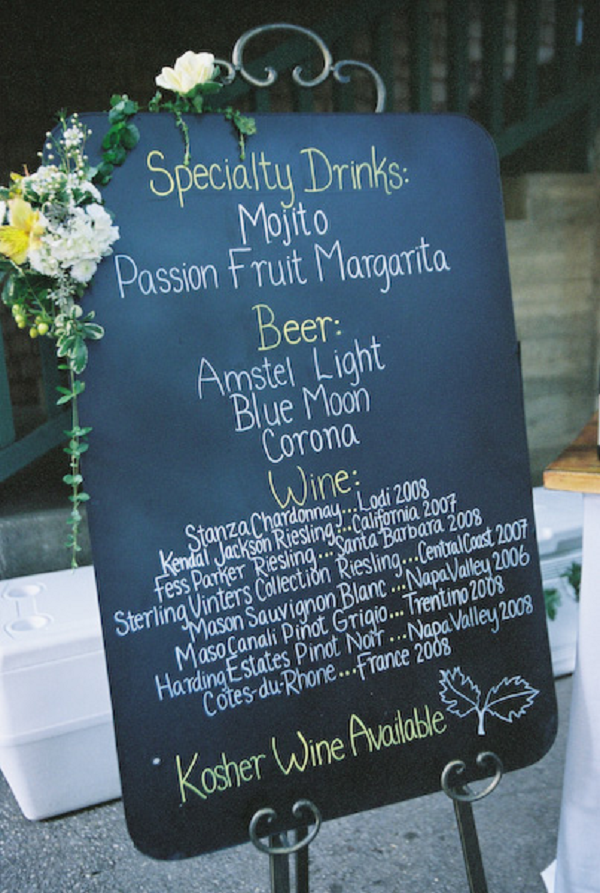 Specialty Drinks:
Mojito
Passion Fruit Margarita
Beer:
Amstel Light
Blue Moon
Corona
Wine:
Stanza Chardonnay...Lodi 2008
Kendal Jackson Riesling...California 2007
Fess Parker Riesling...Santa Barbara 2008
Sterling Vinters Collection Riesling...Central Coast 2007
Mason Sauvignon Blanc...Napa Valley 2006
Maso Canali Pinot Grigio...Trentino 2008
Harding Estates Pinot Noir...Napa Valley 2008
Cotes-du-Rhone...France 2008
Kosher Wine Available